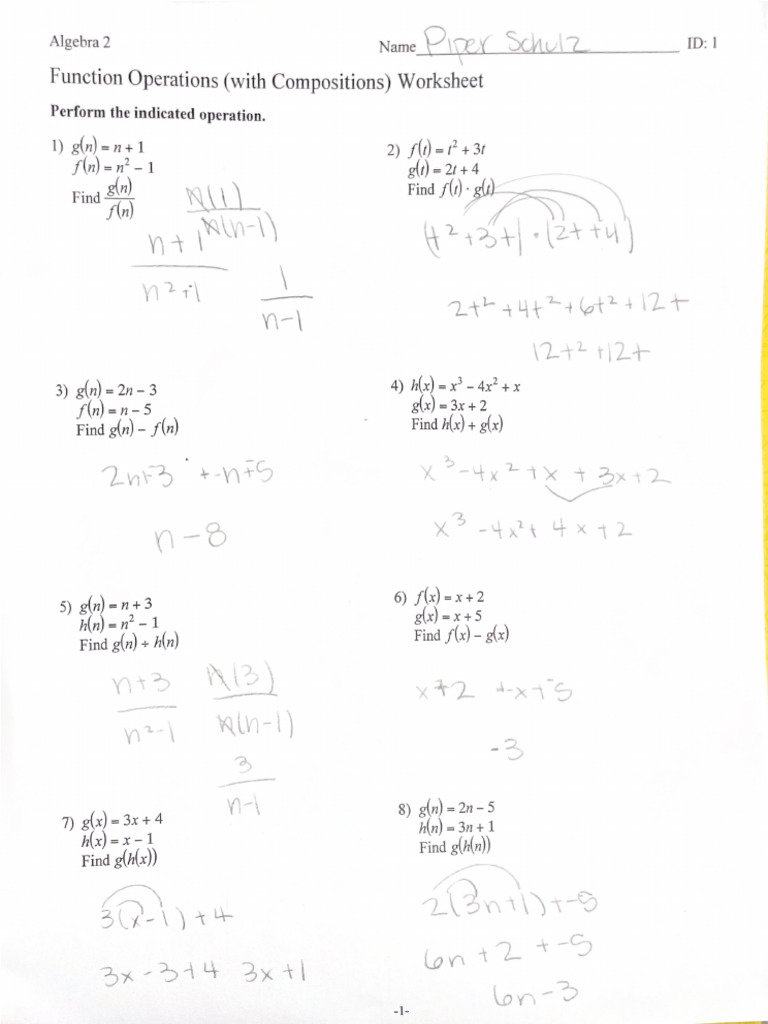 Algebra 2
Name Piper Schulz ID: 1
Function Operations (with Compositions) Worksheet
Perform the indicated operation.
1) g(n) = n + 1
f(n) = n² − 1
Find g(n)/f(n)
n(1)
n(n-1)
n+1
n²+1
1
n-1
2) f(t) = t² + 3t
g(t) = 2t + 4
Find f(t) · g(t)
(t²+3t) · (2t+4)
2t² + 4t² + 6t² + 12t
12t² + 12t
3) g(n) = 2n − 3
f(n) = n − 5
Find g(n) − f(n)
2n+-3 +-n+-5
n - 8
4) h(x) = x³ − 4x² + x
g(x) = 3x + 2
Find h(x) + g(x)
x³-4x²+x + 3x+2
x³ -4x²+ 4x+2
5) g(n) = n + 3
h(n) = n² − 1
Find g(n) ÷ h(n)
n+3
n²-1
n(3)
n(n-1)
3
n-1
6) f(x) = x + 2
g(x) = x + 5
Find f(x) − g(x)
x+2 +-x+-5
-3
7) g(x) = 3x + 4
h(x) = x − 1
Find g(h(x))
3(x-1)+4
3x-3+4 3x+1
8) g(n) = 2n − 5
h(n) = 3n + 1
Find g(h(n))
2(3n+1)+-5
6n+2 +-5
6n-3
-1-